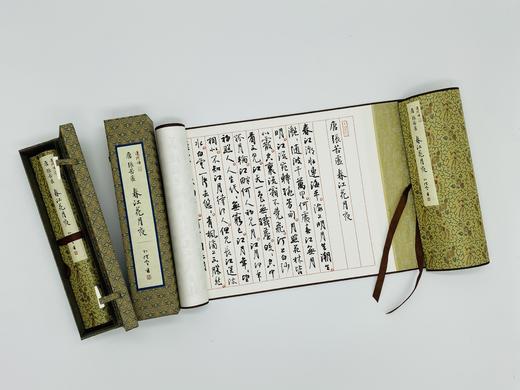 唐張若虛 春江花月夜
唐張若虛 春江花月夜
唐張若虛 春江花月夜
唐張若虛 春江花月夜
春江潮水連海平海上明月共潮生灧
灧隨波千萬里何處春江無月
明江流宛轉繞芳甸月照花林皆
似霰空裏流霜不覺飛汀上白沙
看不見江天一色無纖塵皎皎空中
孤月輪江畔何人初見月江月何年
初照人人生代代無窮已江月年年望
相似不知江月待何人但見長江送流
水白雲一片去悠悠青楓浦上不勝愁